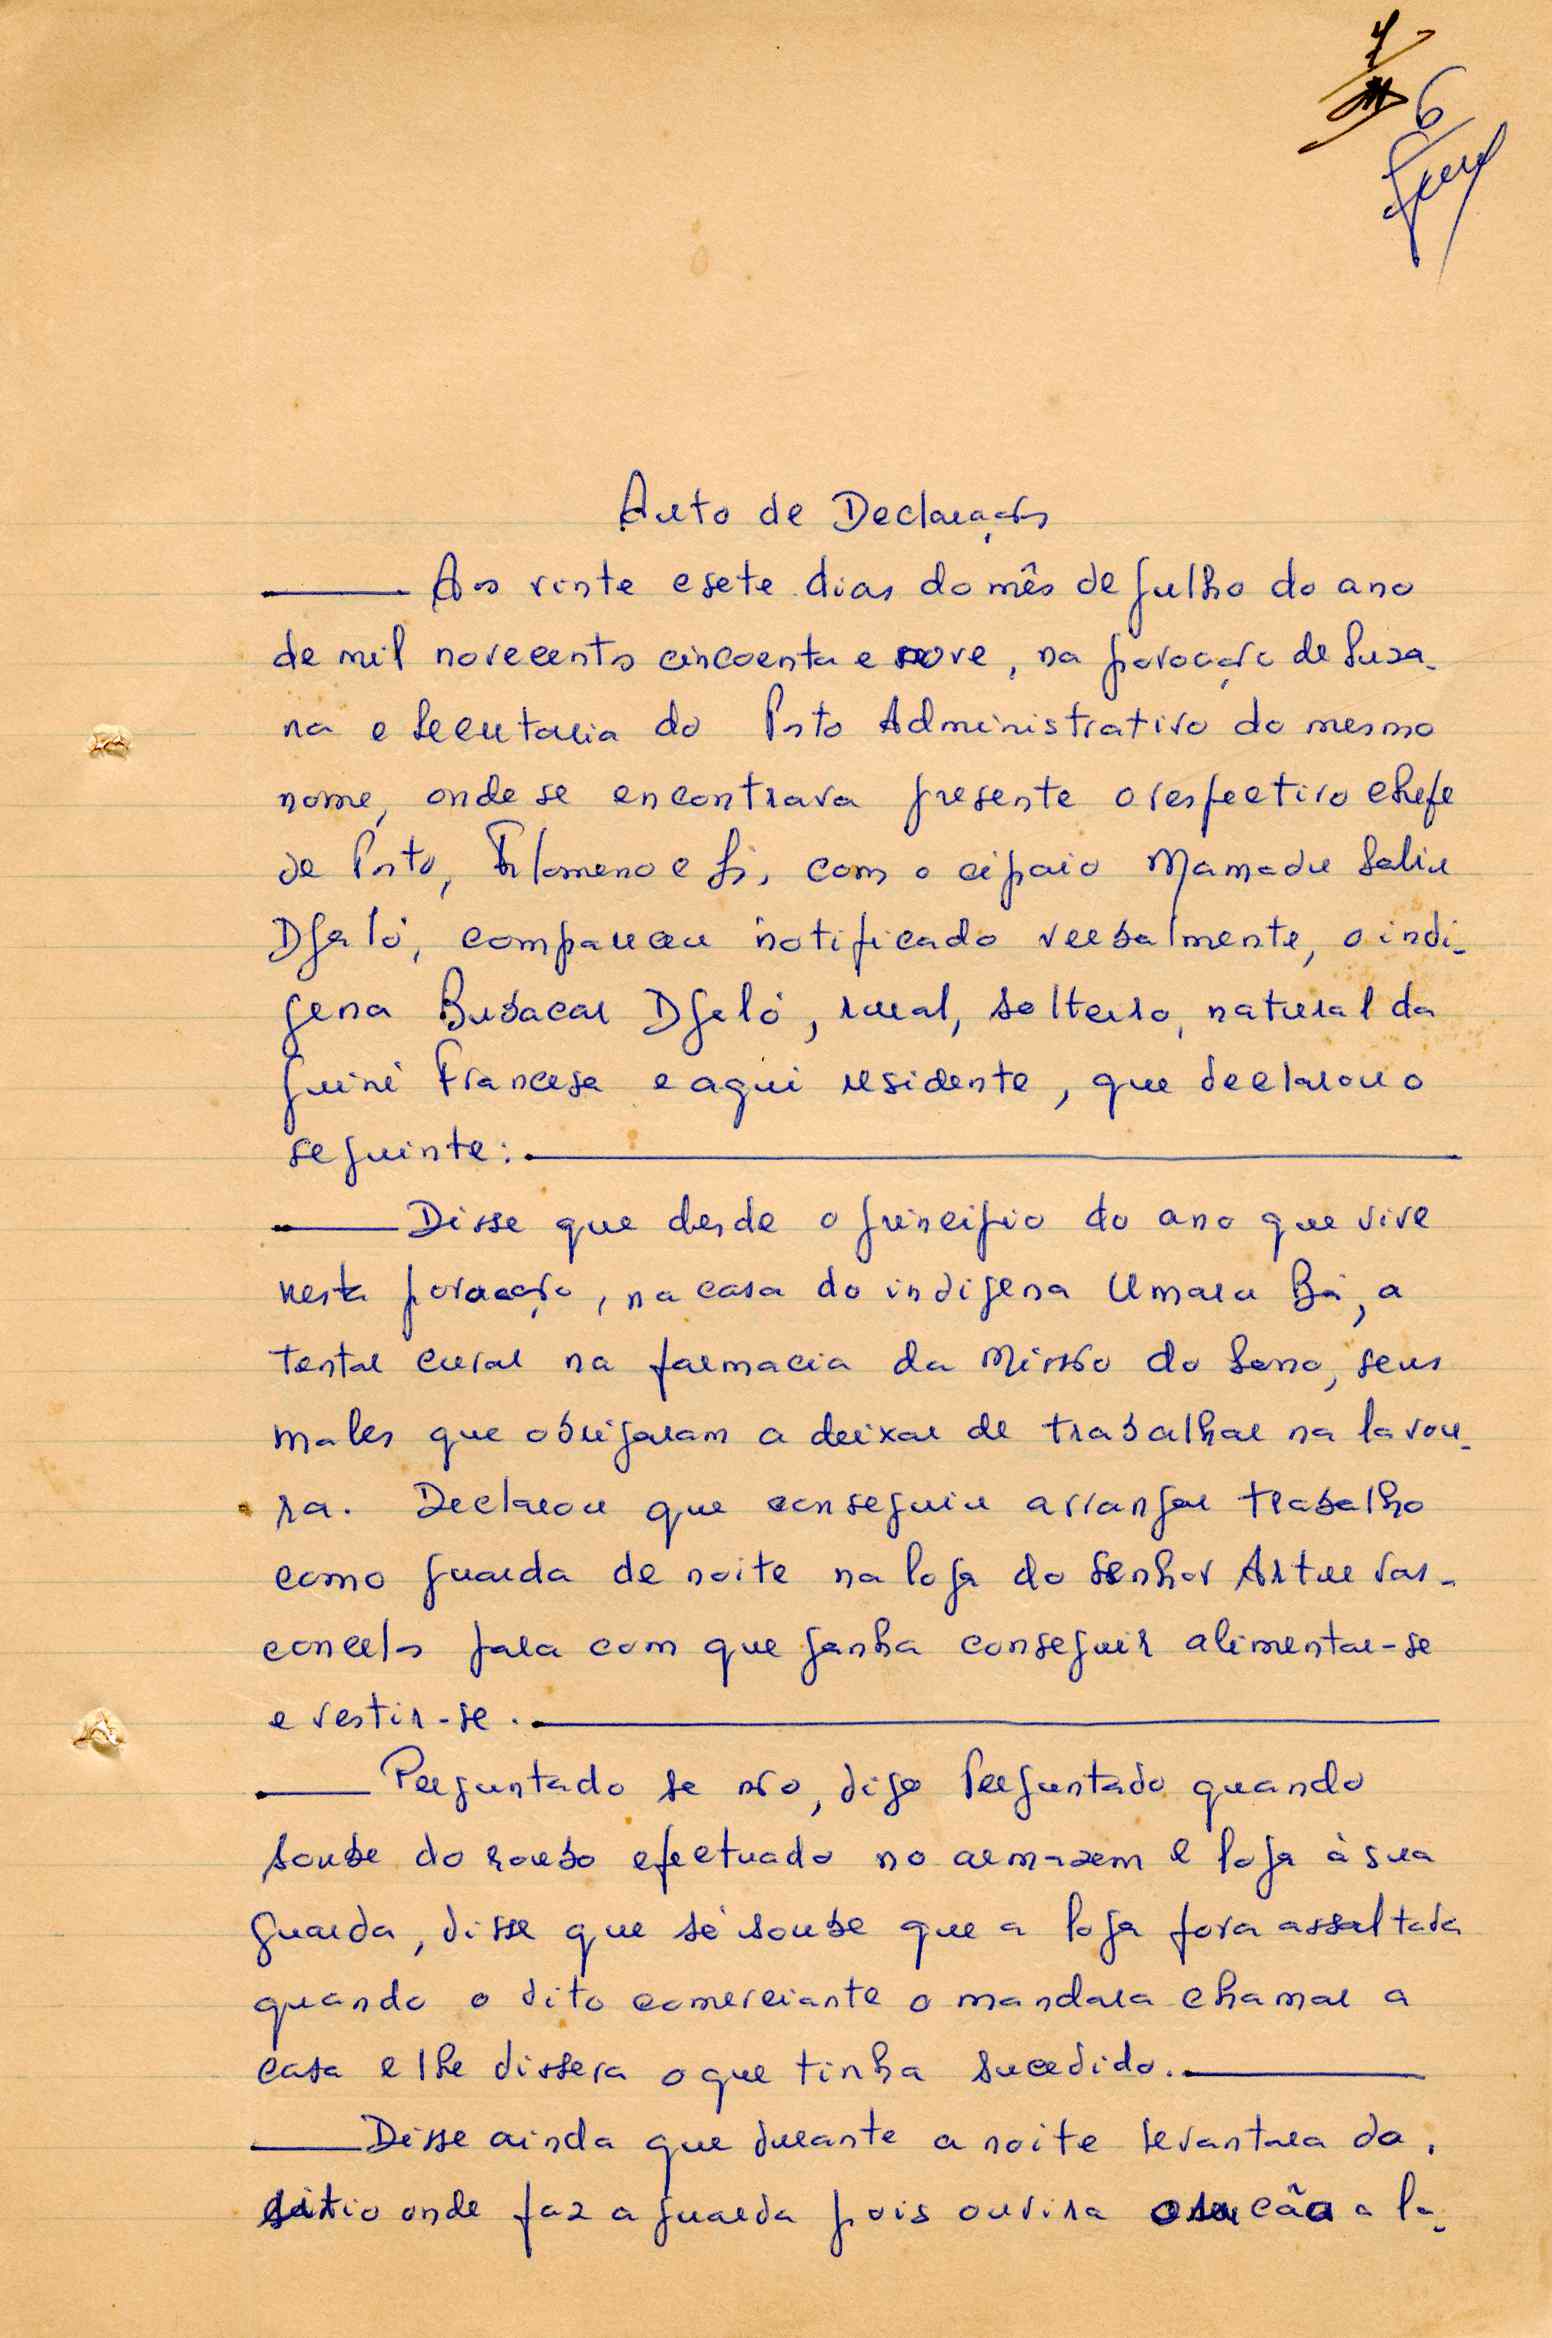 6
Auto de Declarações
Aos vinte e sete dias do mês de Julho do ano
de mil novecentos cincoenta e nove, na povoação de Suza-
na e Secretaria do Posto Administrativo do mesmo
nome, onde se encontrava presente o respectivo chefe
de Posto, Filomeno e Sá, com o cipaio Mamadu Saliu
Djaló, compareceu notificado verbalmente, o indi-
gena Bubacar Djaló, rural, solteiro, natural da
Guiné Francesa e aqui residente, que declarou o
seguinte:
Disse que desde o principio do ano que vive
nesta povoação, na casa do indigena Umaru Bá, a
tentar curar na farmacia da Missão do Sono, seus
males que obrigaram a deixar de trabalhar na lavou-
ra. Declarou que conseguiu arranjar trabalho
como guarda de noite na loja do Senhor Artur Vas-
concelos para com que ganha conseguir alimentar-se
e vestir-se.
Perguntado se não, digo Perguntado quando
soube do roubo efectuado no armazem e loja à sua
guarda, disse que só soube que a loja fora assaltada
quando o dito comerciante o mandara chamar a
casa e lhe dissera o que tinha sucedido.
Disse ainda que durante a noite levantara do
sitio onde faz a guarda pois ouvira o seu cão a la-